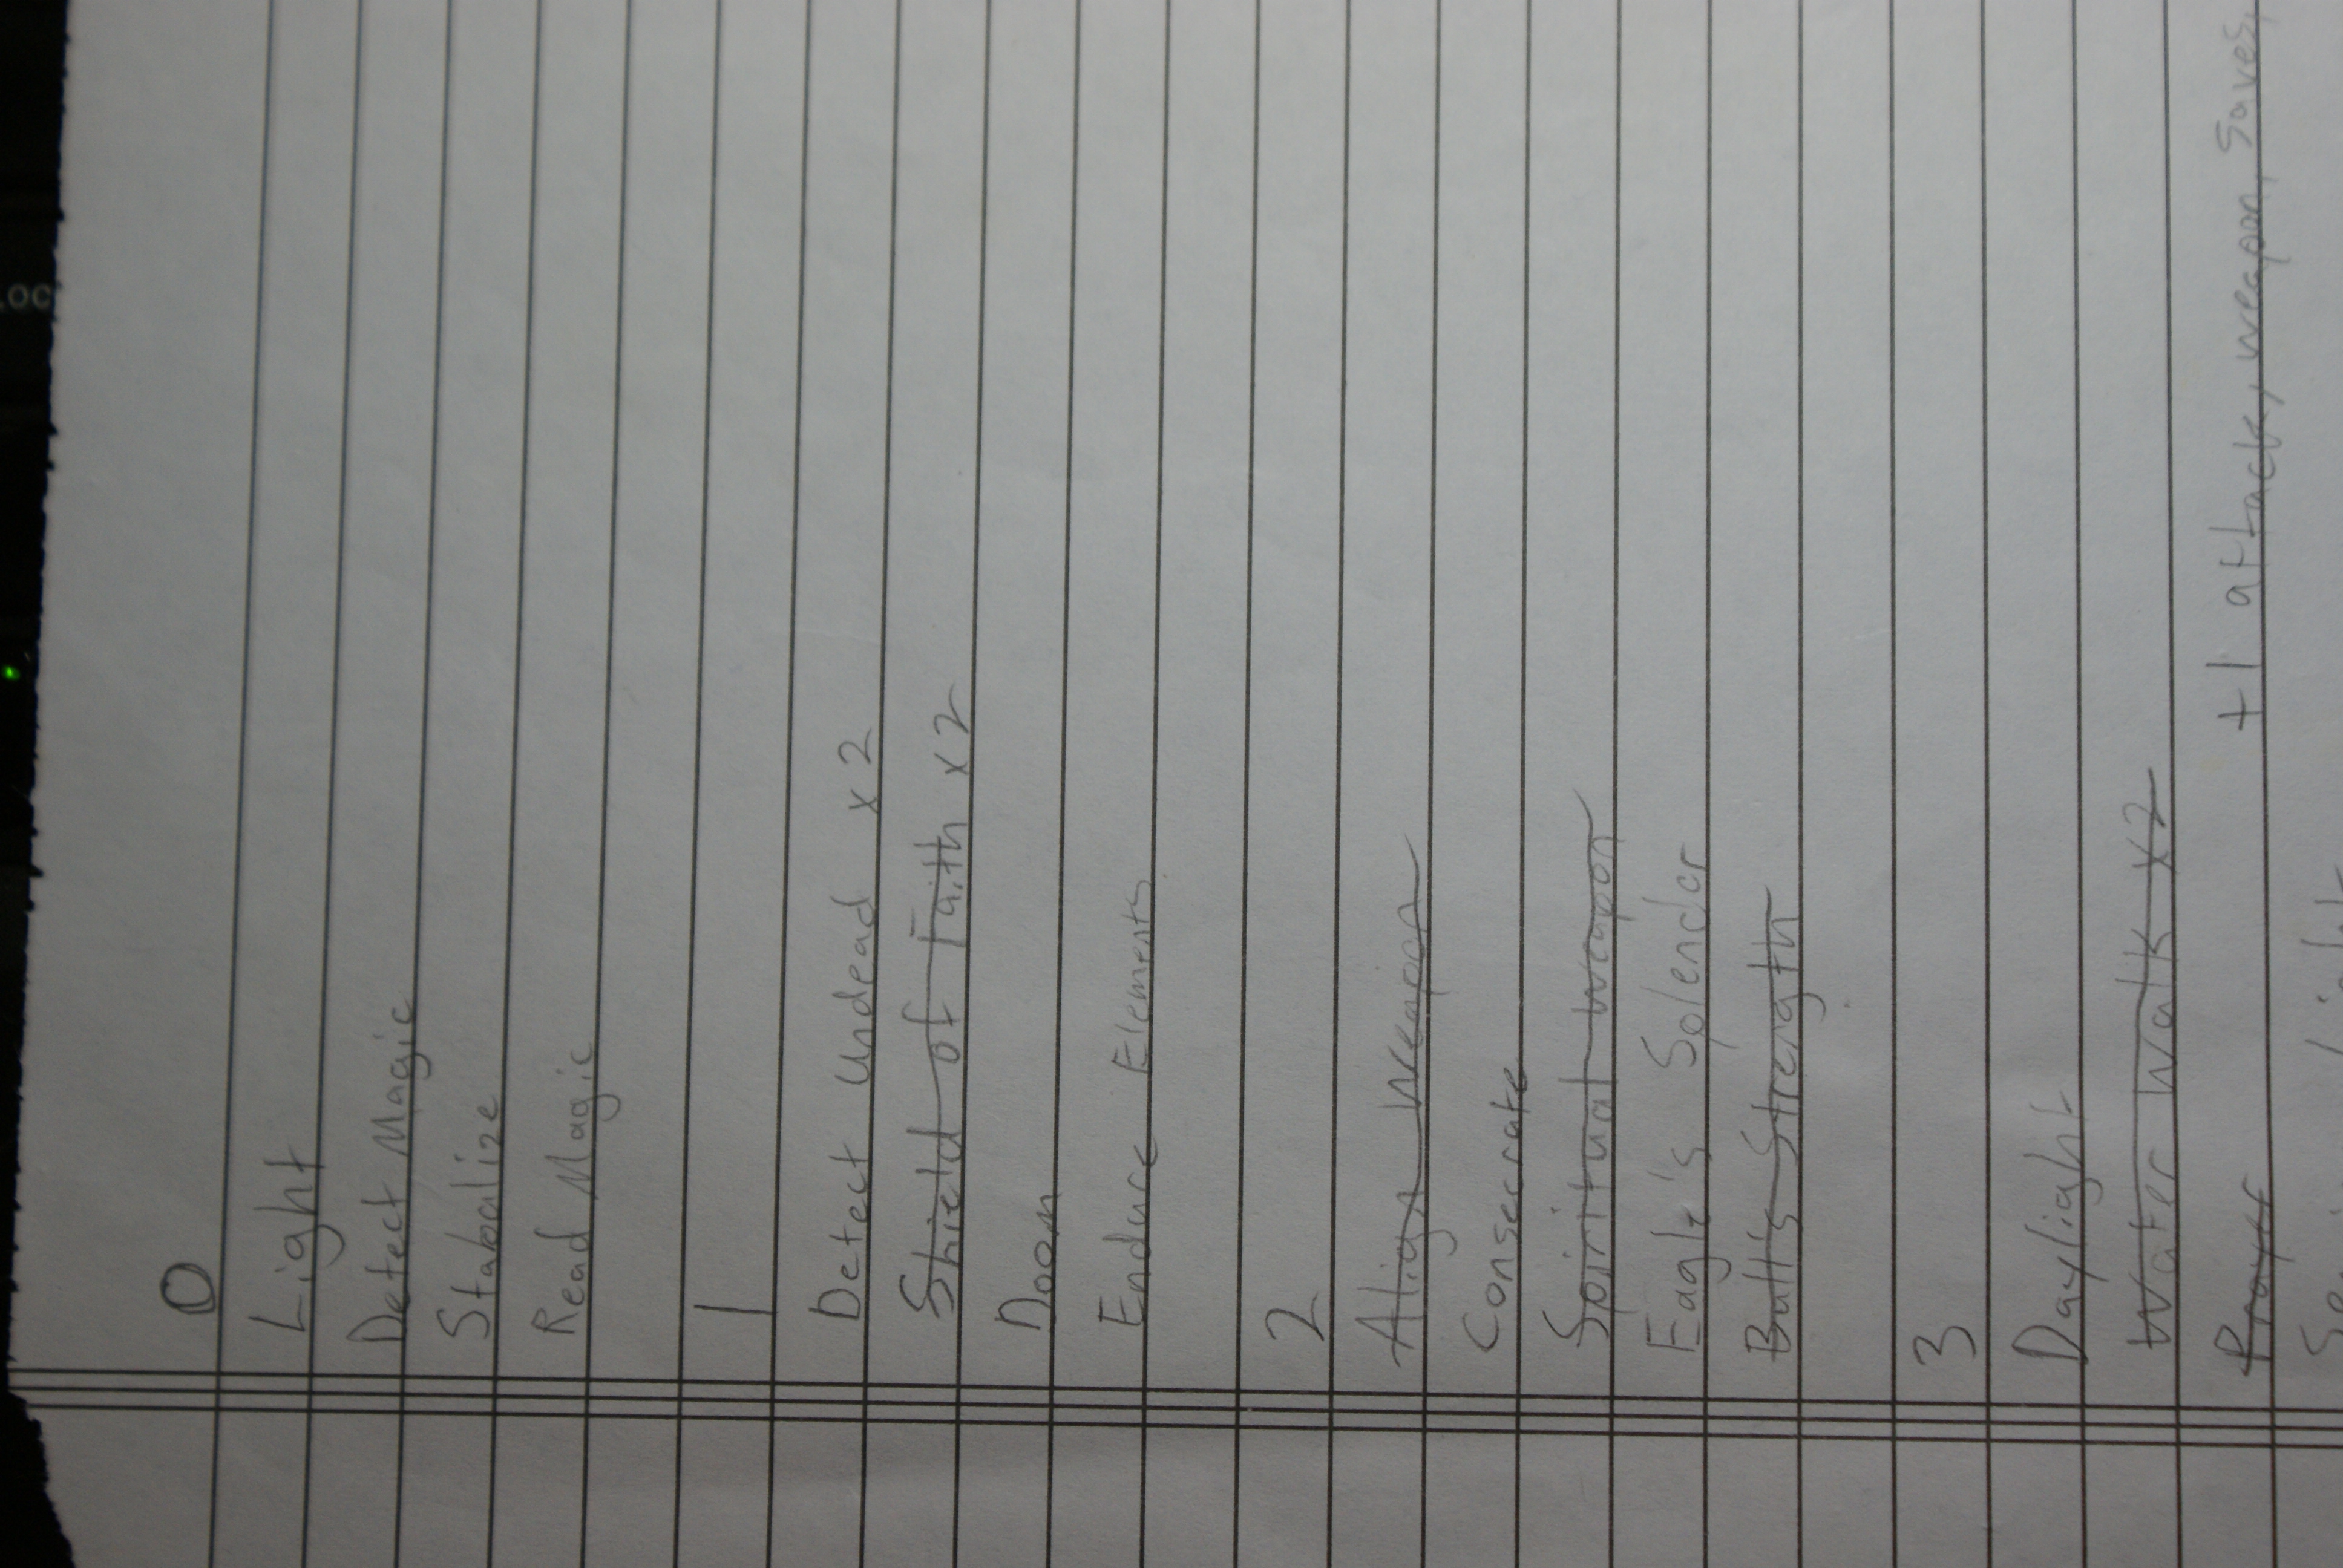 0
Light
Detect Magic
Stabalize
Read Magic
1
Detect Undead x2
Shield of Faith x2
Doom
Endure Elements
2
Align weapon
Consecrate
Spiritual weapon
Eagle's Splendor
Bull's Strength
3
Daylight
Water Walk x2
Prayer +1 attack, weapon, saves,